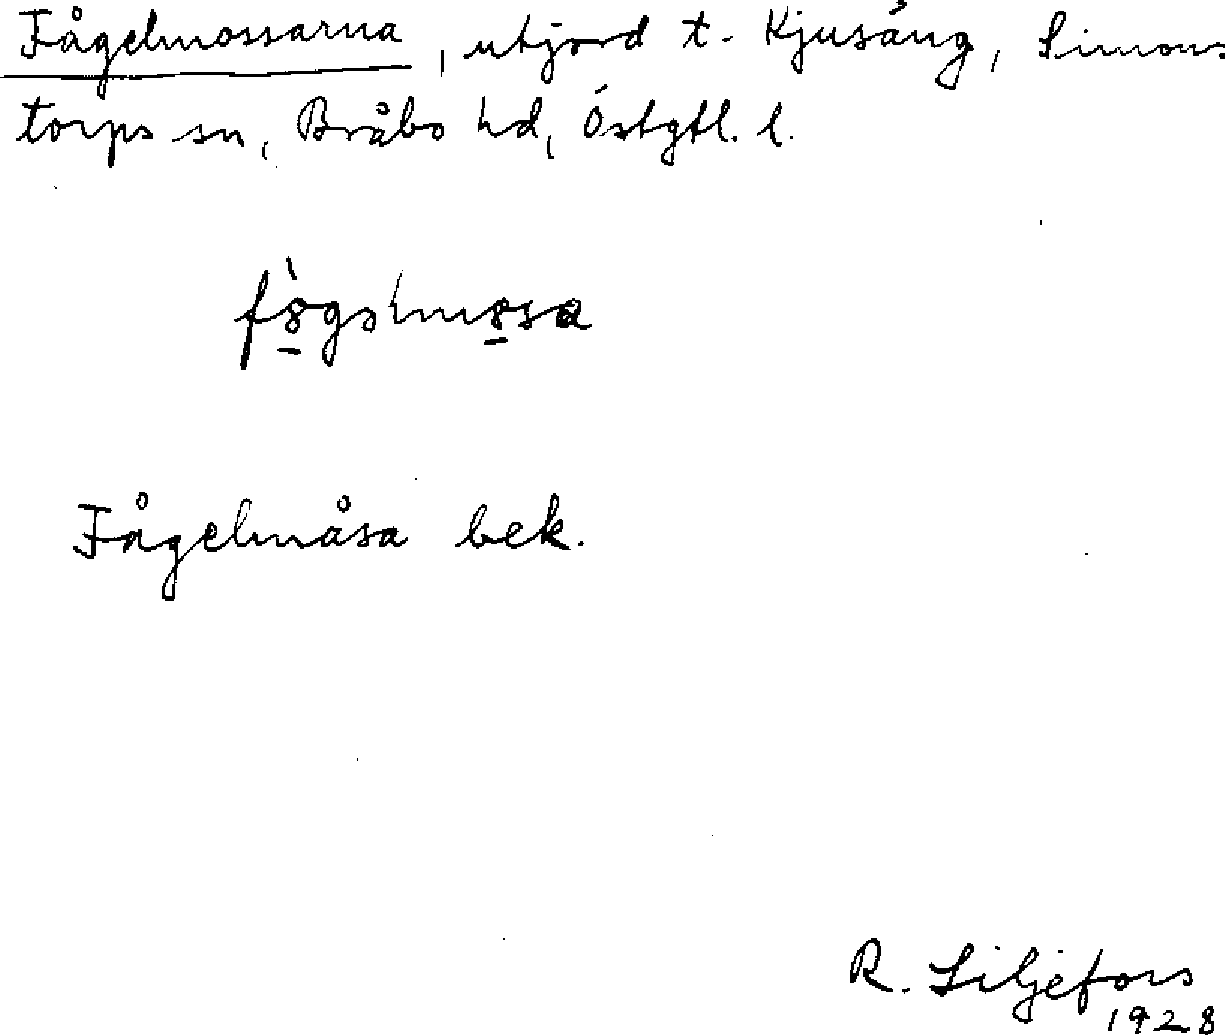 Fågelmossarna, utjord t. Kjusäng, Simons
torps sn, Bråbo hd, Östgtl. l.
Fågelmåsa bek.
R. Liljefors
1928